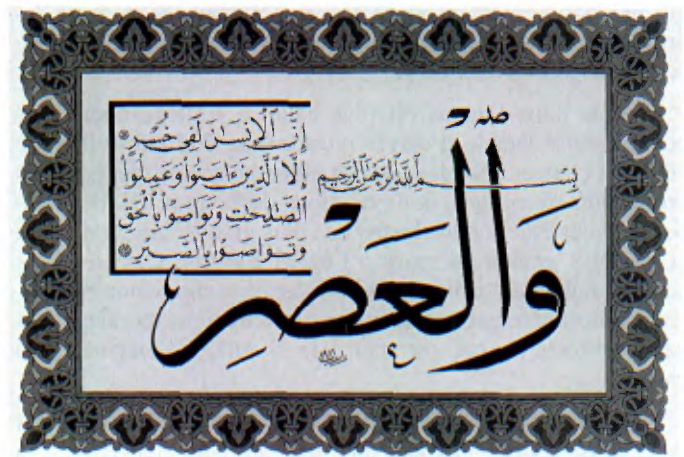 بِسْمِ ٱللَّهِ ٱلرَّحْمَٰنِ ٱلرَّحِيمِ
وَالْعَصْرِ
إِنَّ ٱلْإِنسَٰنَ لَفِى خُسْرٍ
إِلَّا ٱلَّذِينَ ءَامَنُوا۟ وَعَمِلُوا۟
ٱلصَّٰلِحَٰتِ وَتَوَاصَوْا۟ بِٱلْحَقِّ
وَتَوَاصَوْا۟ بِٱلصَّبْرِ